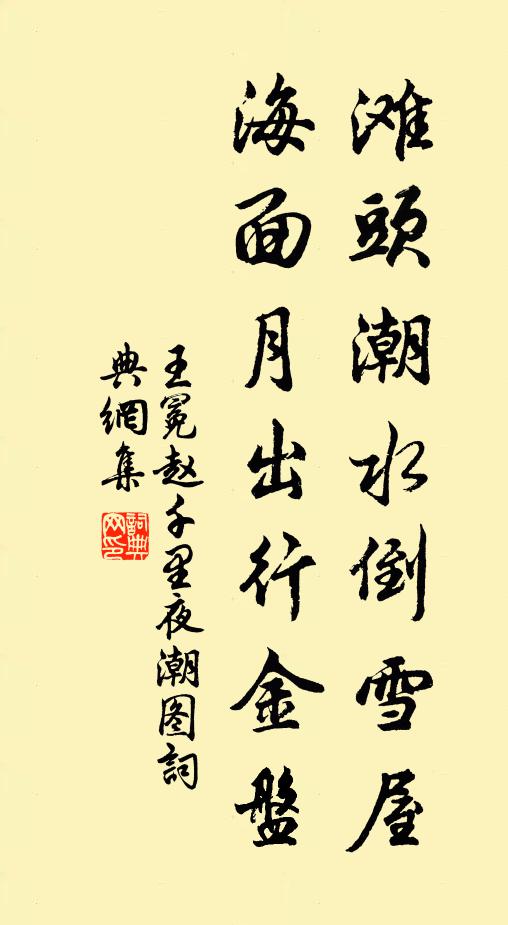 滩頭潮水倒雪屋
海面月出行金盤
王冕赵千里夜潮图詞
典網集
詞典网印